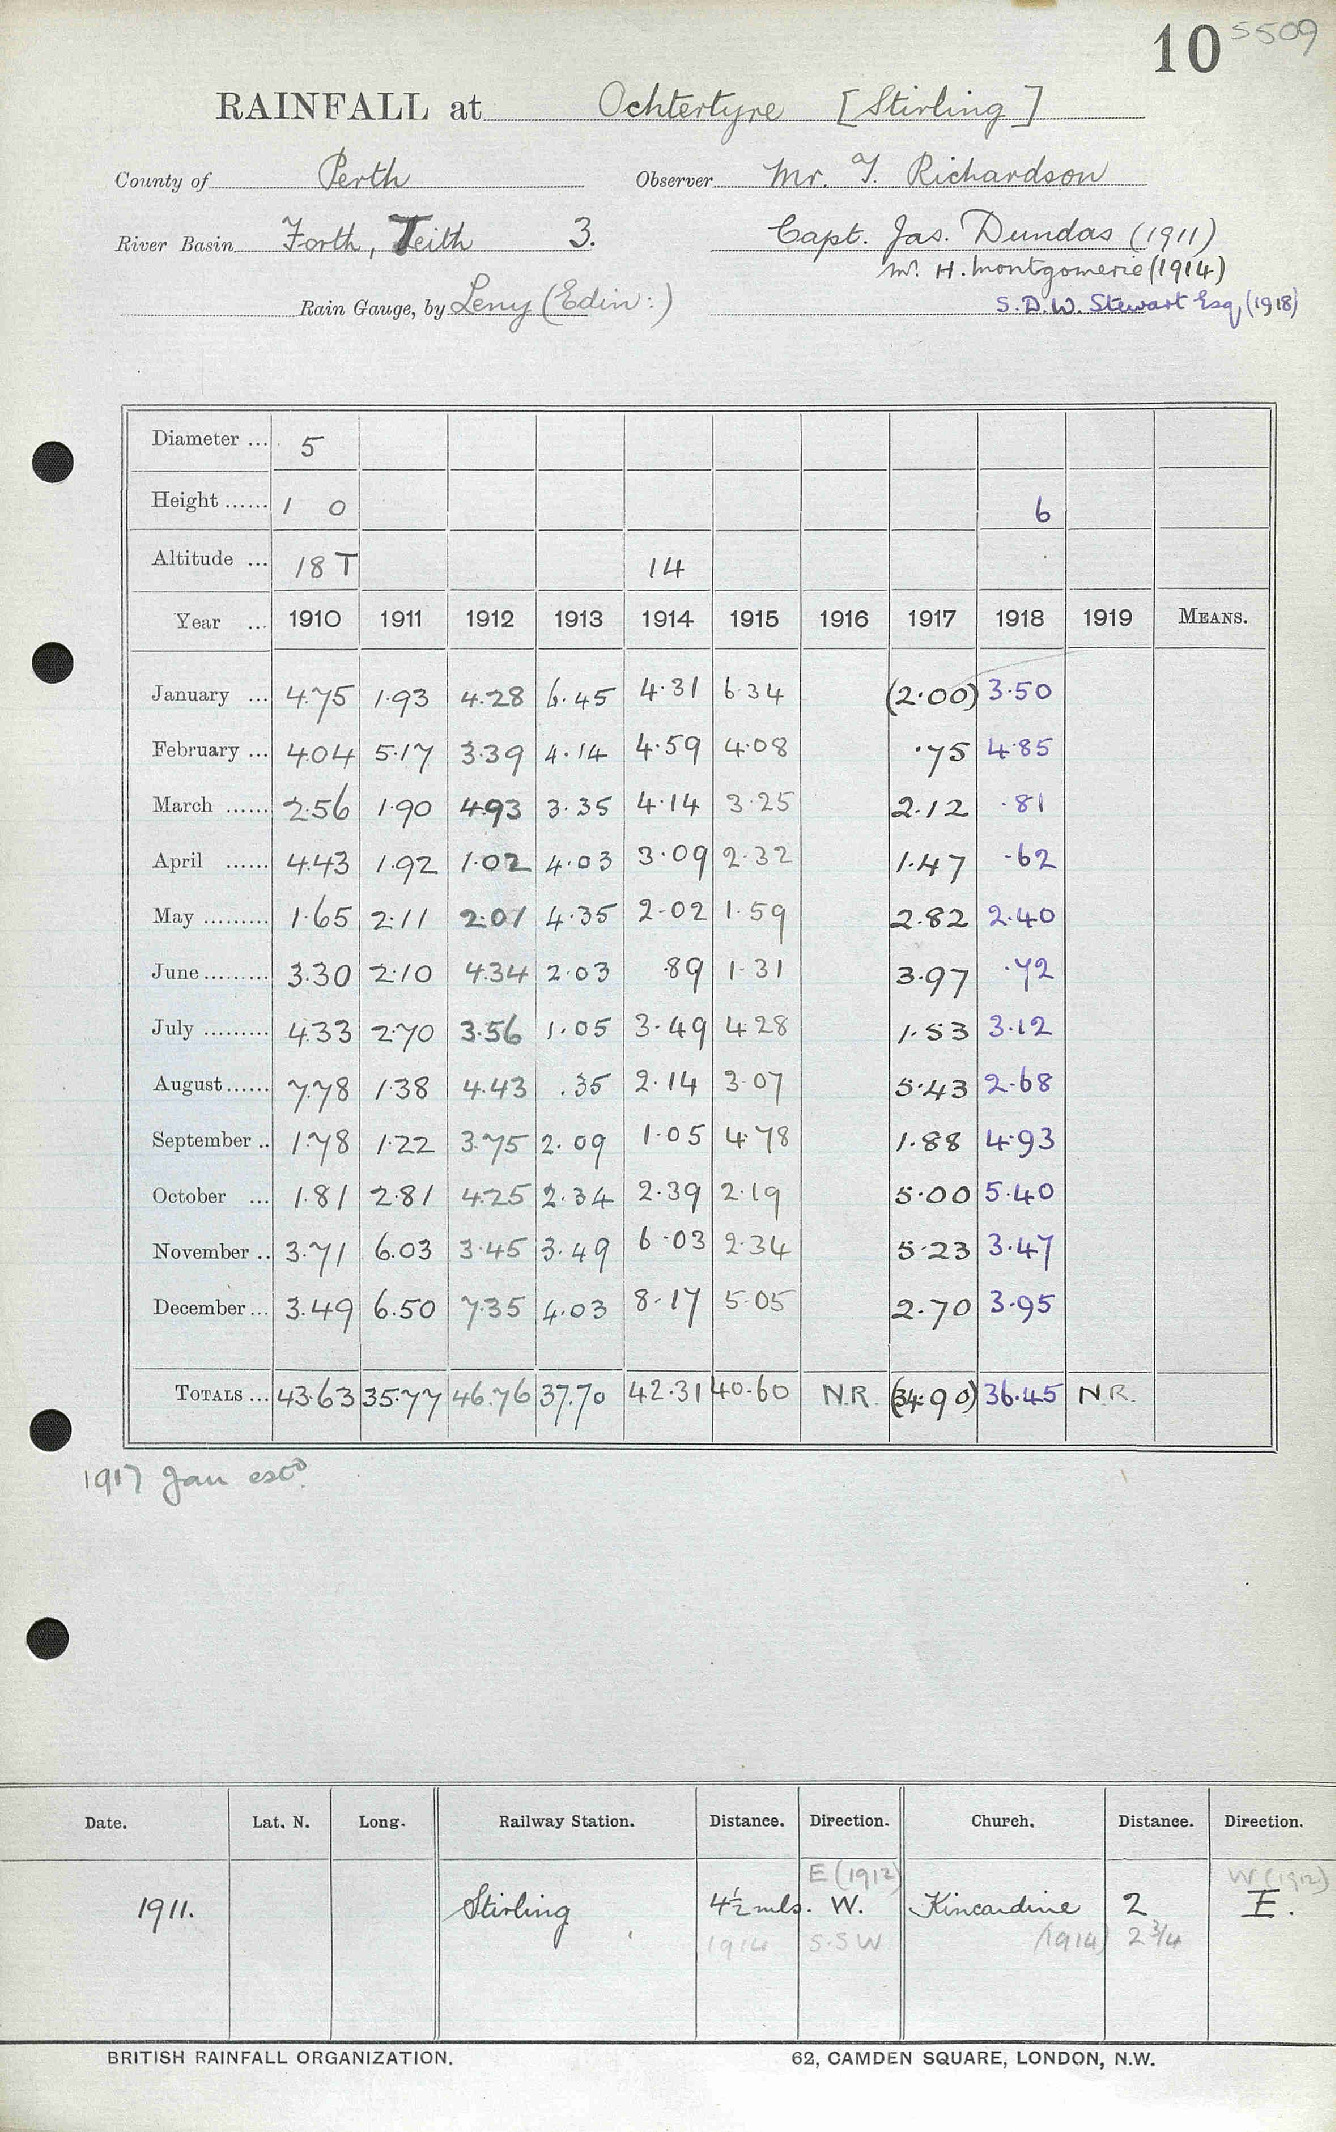 10 5509
RAINFALL at Ochtertyre [Stirling]
County of Perth Observer Mr. T. Richardson
River Basin Forth, Teith 3. Capt. Jas. Dundas (1911)
Mr. H. Montgomerie (1914)
Rain Gauge, by Leny (Edin:) S.D.W. Stewart Esq (1918)
Diameter ... 5
Height ...... 1 0 6
Altitude ... 18 T 14
Year ... 1910 1911 1912 1913 1914 1915 1916 1917 1918 1919 MEANS.
January ... 4.75 1.93 4.28 6.45 4.31 6.34 (2.00) 3.50
February ... 4.04 5.17 3.39 4.14 4.59 4.08 .75 4.85
March ...... 2.56 1.90 4.93 3.35 4.14 3.25 2.12 .81
April ...... 4.43 1.92 1.02 4.03 3.09 2.32 1.47 .62
May ......... 1.65 2.11 2.01 4.35 2.02 1.59 2.82 2.40
June ......... 3.30 2.10 4.34 2.03 .89 1.31 3.97 .72
July ......... 4.33 2.70 3.56 1.05 3.49 4.28 1.53 3.12
August ...... 7.78 1.38 4.43 .35 2.14 3.07 5.43 2.68
September .. 1.78 1.22 3.75 2.09 1.05 4.78 1.88 4.93
October ... 1.81 2.81 4.25 2.34 2.39 2.19 5.00 5.40
November .. 3.71 6.03 3.45 3.49 6.03 2.34 5.23 3.47
December ... 3.49 6.50 7.35 4.03 8.17 5.05 2.70 3.95
TOTALS ... 43.63 35.77 46.76 37.70 42.31 40.60 N.R. (34.90) 36.45 N.R.
1917 Jan estd.
Date. Lat. N. Long. Railway Station. Distance. Direction. Church. Distance. Direction.
E (1912) W (1912)
1911. Stirling 4½ mls. W. Kincardine 2 E.
1914 S.SW (1914) 2 3/4
BRITISH RAINFALL ORGANIZATION. 62, CAMDEN SQUARE, LONDON, N.W.